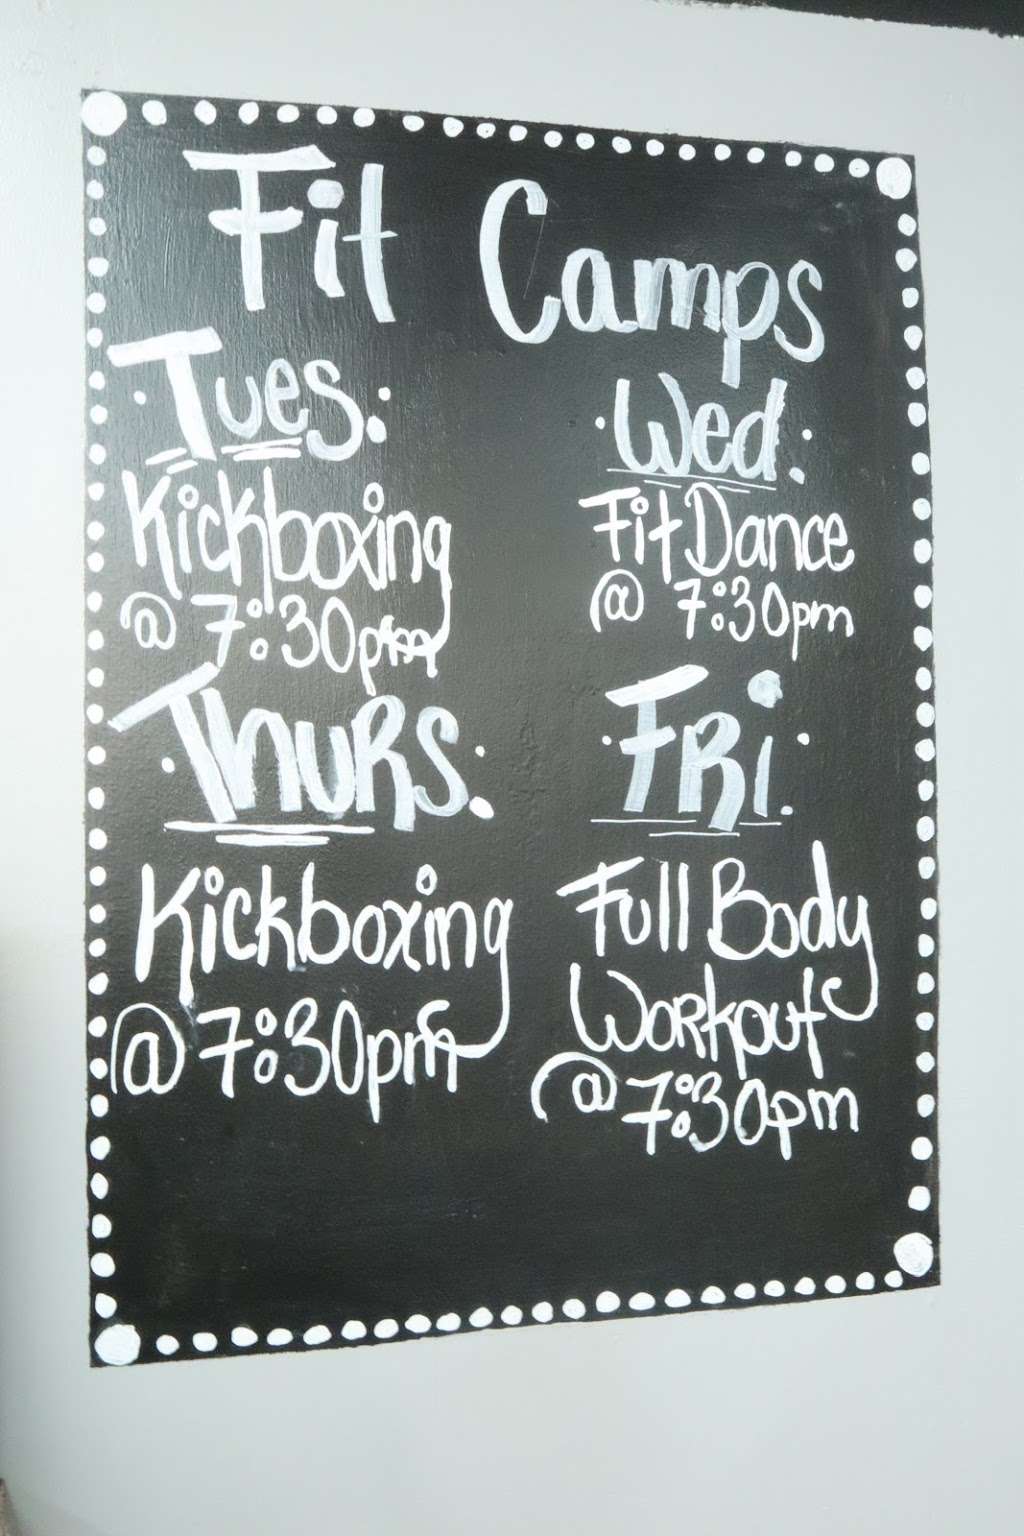 Fit Camps
Tues.
Kickboxing
@ 7:30pm
Wed.
Fit Dance
@ 7:30pm
Thurs.
Kickboxing
@ 7:30pm
Fri.
Full Body
Workout
@ 7:30pm